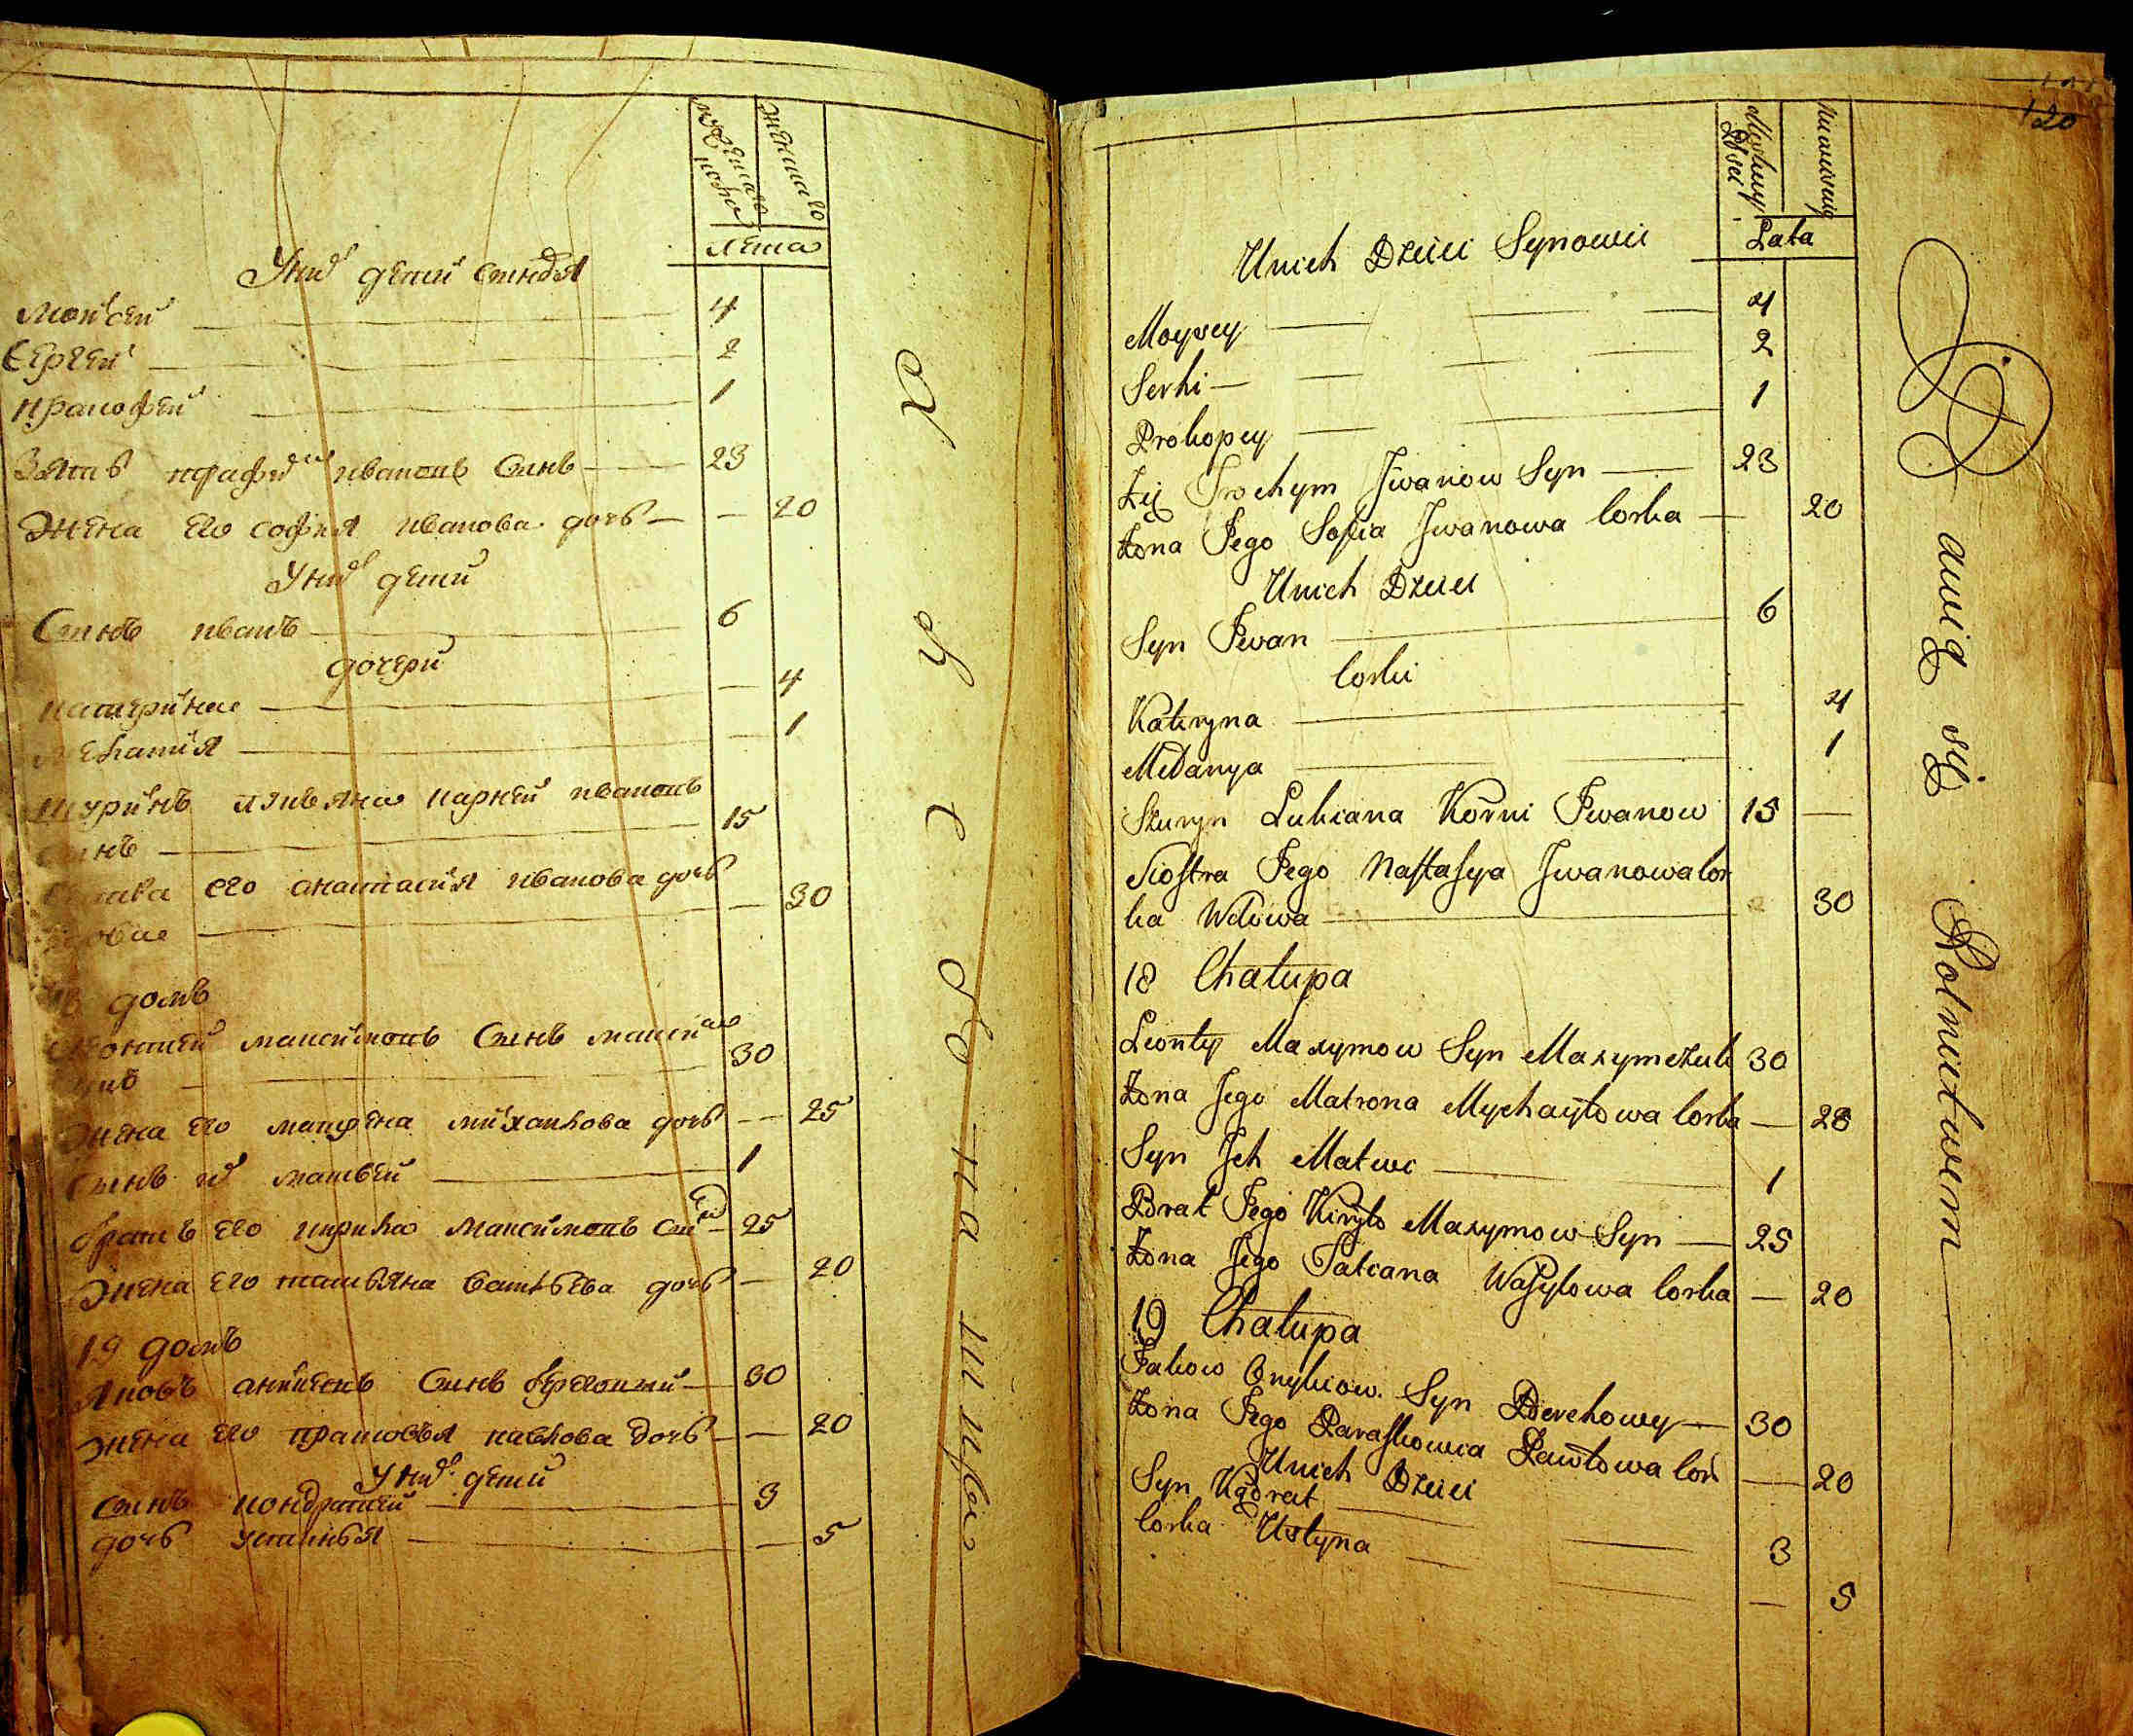 мужеска
пола
женска
лета
У них дети сыновья
Мойсей 4
Сергей 2
Прокофей 1
Зять трафим иванов Сынъ 23
Жена его софия иванова дочь 20
У них дети
Сынъ иванъ 6
дочери
катерина 4
мелания 1
шуринъ лукьяна карней иванов
сынъ 15
его анастасия иванова дочь
вдова 30
18 домъ
леонтей максимовъ Сынъ максим
чукъ 30
Жена его матрена михайлова дочь 25
Сынъ их матвей 1
братъ его кирила максимовъ сынъ 25
Жена его татьяна васильева дочь 20
19 домъ
Яковъ аникеевъ Сынъ береговый 30
жена его прасковья павлова дочь 20
У них дети
сынъ кондратей 3
дочь устинья 5
120
Męskiey
Płsci
Lata
Unich Dzieci Synowie
Moysey 4
Serhi 2
Prokopey 1
Zięć Trochym Jwanow Syn 23
Zona Jego Sofia Jwanowa Corka 20
Unich Dzieci
Syn Jwan 6
Corki
Kateryna 4
Melanya 1
Szuryn Lukiana Korni Jwanow 15
Siostra Jego Nastasya Jwanowa Cor
ka Wdowa 30
18 Chałupa
Leonty Maxymow Syn Maxymczuk 30
Zona Jego Matrona Mychayłowa Corka 28
Syn Jch Matwi 1
Brat Jego Kiryło Maxymow Syn 25
Zona Jego Tatiana Wasylowa Corka 20
19 Chałupa
Jakow Onykiow Syn Berehowy 30
Zona Jego Paraskowia Pawłowa Cor 20
Unich Dzieci
Syn Kodrat 3
Corka Ustyna 5
Bawią się Rolnictwem